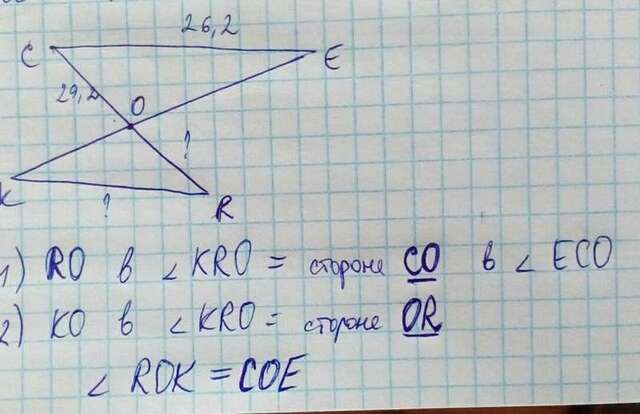 26,2
C
E
29,2
O
?
K
?
R
1) RO в ∠ KRO = стороне CO в ∠ ECO
2) KO в ∠ KRO = стороне OR
∠ ROK = COE